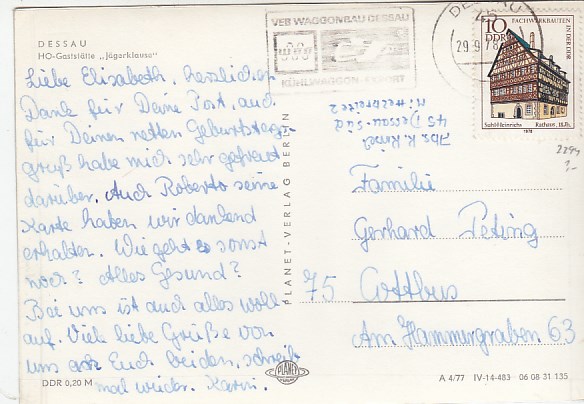 DESSAU
HO-Gaststätte „Jägerklause"
Liebe Elisabeth, herzlichen
Dank für Deine Post, auch
für Deinen netten Geburtstags-
gruß habe mich sehr gefreut
darüber. Auch Roberto seine
Karte haben wir dankend
erhalten. Wie geht es sonst
noch? Alles Gesund?
Bei uns ist auch alles wohl-
auf. Viele liebe Grüße von
uns an Euch beiden, schreib
mal wieder. Karin.
DDR 0,20 M
PLANET-VERLAG BERLIN
VEB WAGGONBAU DESSAU
KÜHLWAGGON-EXPORT
DESSAU
45
29.9.78
10
DDR
FACHWERKBAUTEN
IN DER DDR
Suhl-Heinrichs Rathaus, 16.Jh.
1978
Abs. K.
45 Dessau-Süd
Mittelbreite 2
Familie
Gerhard Peding
75 Cottbus
Am Hammergraben 63
PLANET
A 4/77 IV-14-483 06 08 31 135